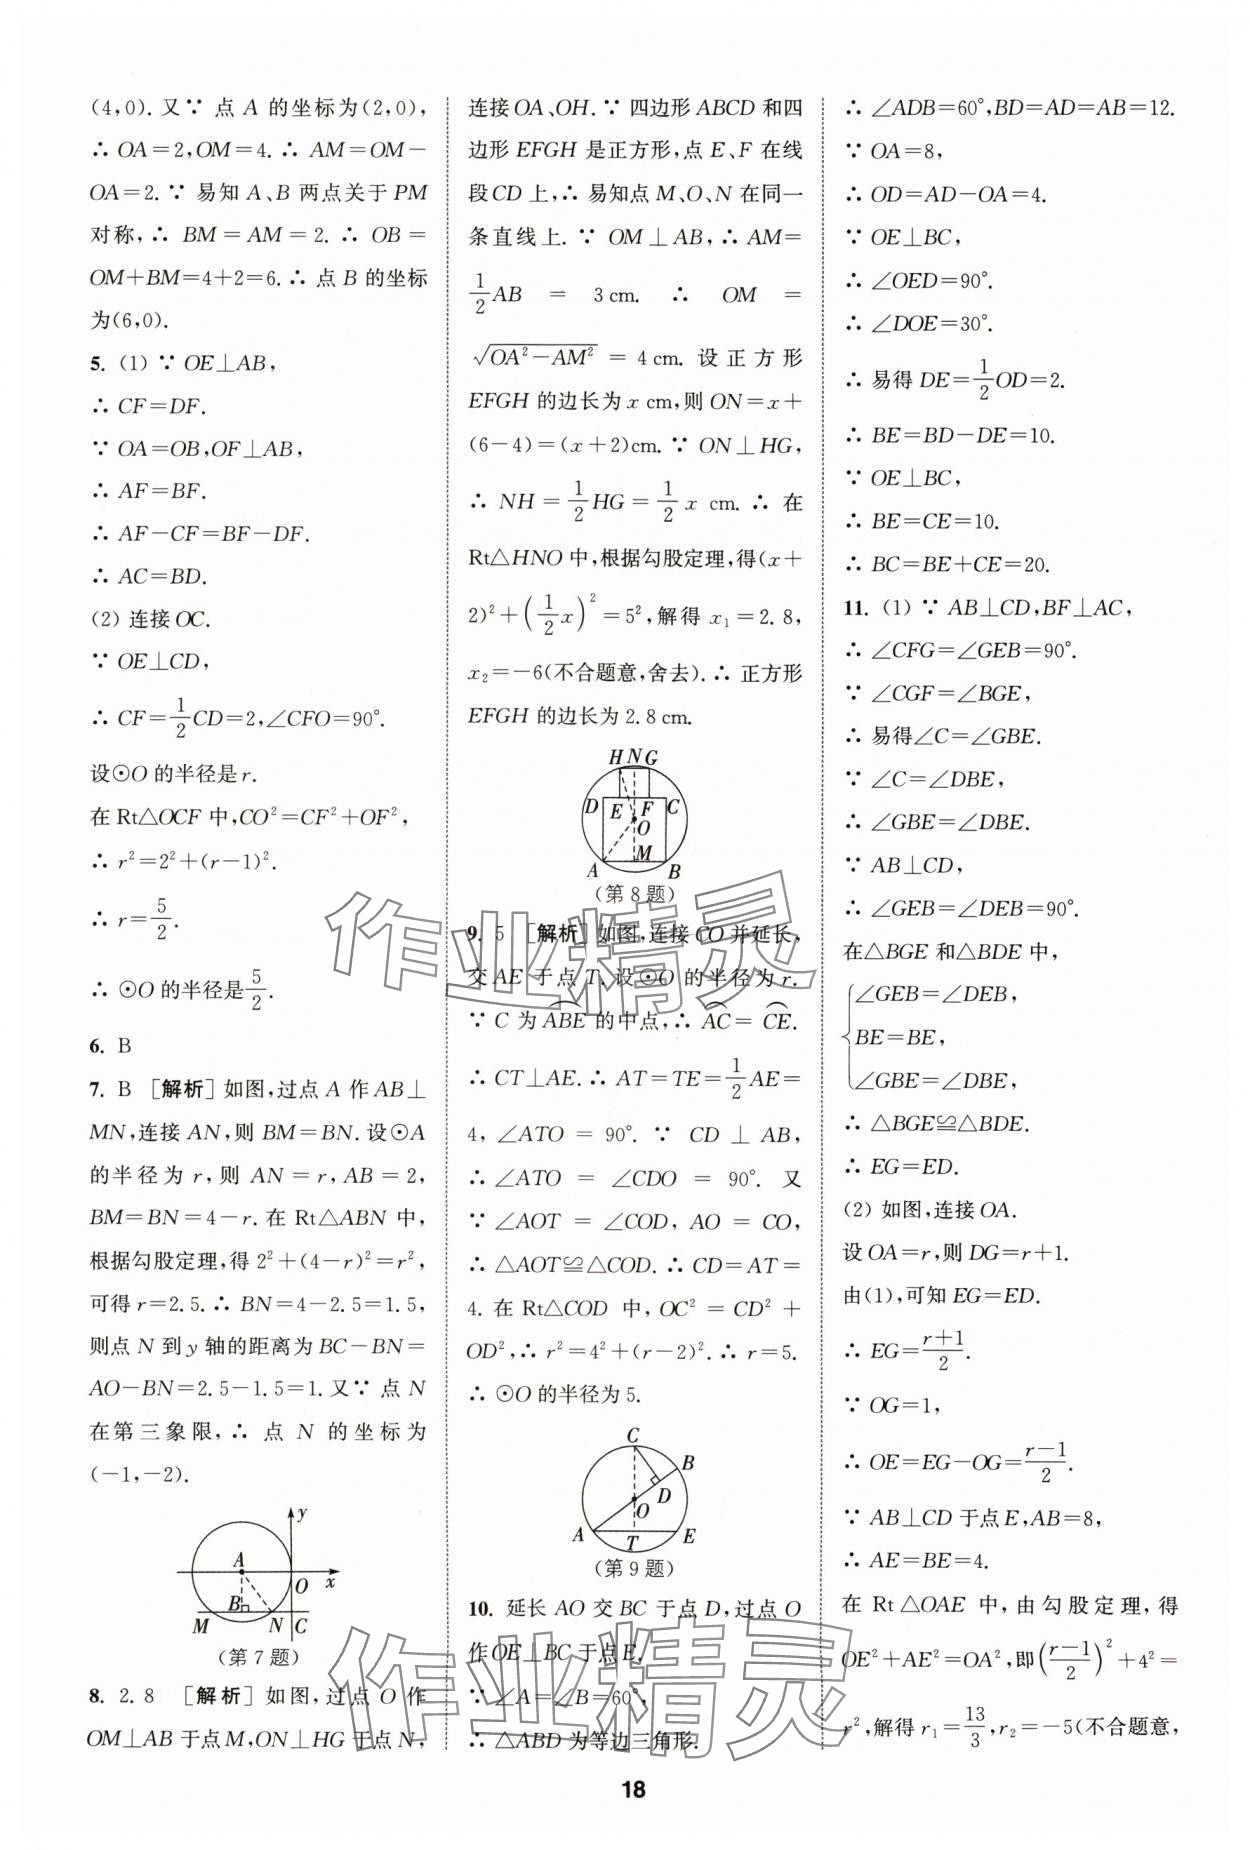 (4,0). 又∵ 点 A 的坐标为(2,0),
∴ OA=2,OM=4. ∴ AM=OM-
OA=2. ∵ 易知 A、B 两点关于 PM
对称,∴ BM=AM=2. ∴ OB=
OM+BM=4+2=6. ∴ 点 B 的坐标
为(6,0).
5. (1) ∵ OE⊥AB,
∴ CF=DF.
∵ OA=OB,OF⊥AB,
∴ AF=BF.
∴ AF-CF=BF-DF.
∴ AC=BD.
(2) 连接 OC.
∵ OE⊥CD,
∴ CF=1/2CD=2,∠CFO=90°.
设⊙O 的半径是 r.
在 Rt△OCF 中,CO²=CF²+OF²,
∴ r²=2²+(r-1)².
∴ r=5/2.
∴ ⊙O 的半径是5/2.
6. B
7. B [解析] 如图,过点 A 作 AB⊥
MN,连接 AN,则 BM=BN. 设⊙A
的半径为 r,则 AN=r,AB=2,
BM=BN=4-r. 在 Rt△ABN 中,
根据勾股定理,得 2²+(4-r)²=r²,
可得 r=2.5. ∴ BN=4-2.5=1.5,
则点 N 到 y 轴的距离为 BC-BN=
AO-BN=2.5-1.5=1. 又∵ 点 N
在第三象限,∴ 点 N 的坐标为
(-1,-2).
y
A
O x
B
M N C
(第 7 题)
8. 2.8 [解析] 如图,过点 O 作
OM⊥AB 于点 M,ON⊥HG 于点 N,
连接 OA、OH. ∵ 四边形 ABCD 和四
边形 EFGH 是正方形,点 E、F 在线
段 CD 上,∴ 易知点 M、O、N 在同一
条直线上. ∵ OM⊥AB,∴ AM=
1/2AB = 3 cm. ∴ OM =
√(OA²-AM²) = 4 cm. 设正方形
EFGH 的边长为 x cm,则 ON=x+
(6-4)=(x+2)cm. ∵ ON⊥HG,
∴ NH=1/2HG=1/2x cm. ∴ 在
Rt△HNO 中,根据勾股定理,得(x+
2)²+(1/2x)²=5²,解得 x₁=2.8,
x₂=-6(不合题意,舍去). ∴ 正方形
EFGH 的边长为 2.8 cm.
H N G
D E F C
O
M
A B
(第 8 题)
9. 5 [解析] 如图,连接 CO 并延长,
交 AE 于点 T,设⊙O 的半径为 r.
∵ C 为 ABE⌒ 的中点,∴ AC⌒ = CE⌒.
∴ CT⊥AE. ∴ AT=TE=1/2AE=
4,∠ATO = 90°. ∵ CD⊥AB,
∴ ∠ATO = ∠CDO = 90°. 又
∵ ∠AOT = ∠COD, AO = CO,
∴ △AOT≌△COD. ∴ CD=AT=
4. 在 Rt△COD 中,OC²=CD²+
OD²,∴ r²=4²+(r-2)². ∴ r=5.
∴ ⊙O 的半径为 5.
C
B
D
O
A T E
(第 9 题)
10. 延长 AO 交 BC 于点 D,过点 O
作 OE⊥BC 于点 E.
∵ ∠A=∠B=60°,
∴ △ABD 为等边三角形.
∴ ∠ADB=60°,BD=AD=AB=12.
∵ OA=8,
∴ OD=AD-OA=4.
∵ OE⊥BC,
∴ ∠OED=90°.
∴ ∠DOE=30°.
∴ 易得 DE=1/2OD=2.
∴ BE=BD-DE=10.
∵ OE⊥BC,
∴ BE=CE=10.
∴ BC=BE+CE=20.
11. (1) ∵ AB⊥CD,BF⊥AC,
∴ ∠CFG=∠GEB=90°.
∵ ∠CGF=∠BGE,
∴ 易得∠C=∠GBE.
∵ ∠C=∠DBE,
∴ ∠GBE=∠DBE.
∵ AB⊥CD,
∴ ∠GEB=∠DEB=90°.
在△BGE 和△BDE 中,
{∠GEB=∠DEB,
BE=BE,
∠GBE=∠DBE,
∴ △BGE≌△BDE.
∴ EG=ED.
(2) 如图,连接 OA.
设 OA=r,则 DG=r+1.
由(1),可知 EG=ED.
∴ EG=(r+1)/2.
∵ OG=1,
∴ OE=EG-OG=(r-1)/2.
∵ AB⊥CD 于点 E,AB=8,
∴ AE=BE=4.
在 Rt△OAE 中,由勾股定理,得
OE²+AE²=OA²,即((r-1)/2)²+4²=
r²,解得 r₁=13/3,r₂=-5(不合题意,
18
作业精灵
作业精灵